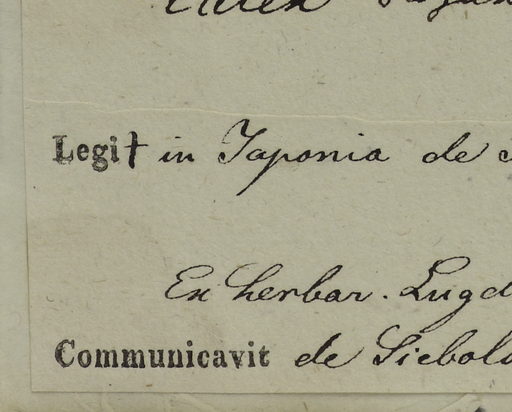 Legit in Japonia de
Ex herbar. Lugd
Communicavit de Siebold